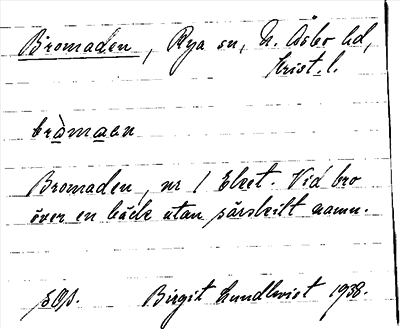 Bromaden, Rya sn, N. Åsbo hd,
Krist. l.
bròmaan
Bromaden, nr 1 Eket. Vid bro
över en bäck utan särskilt namn.
Birgit Lundkvist 1938.